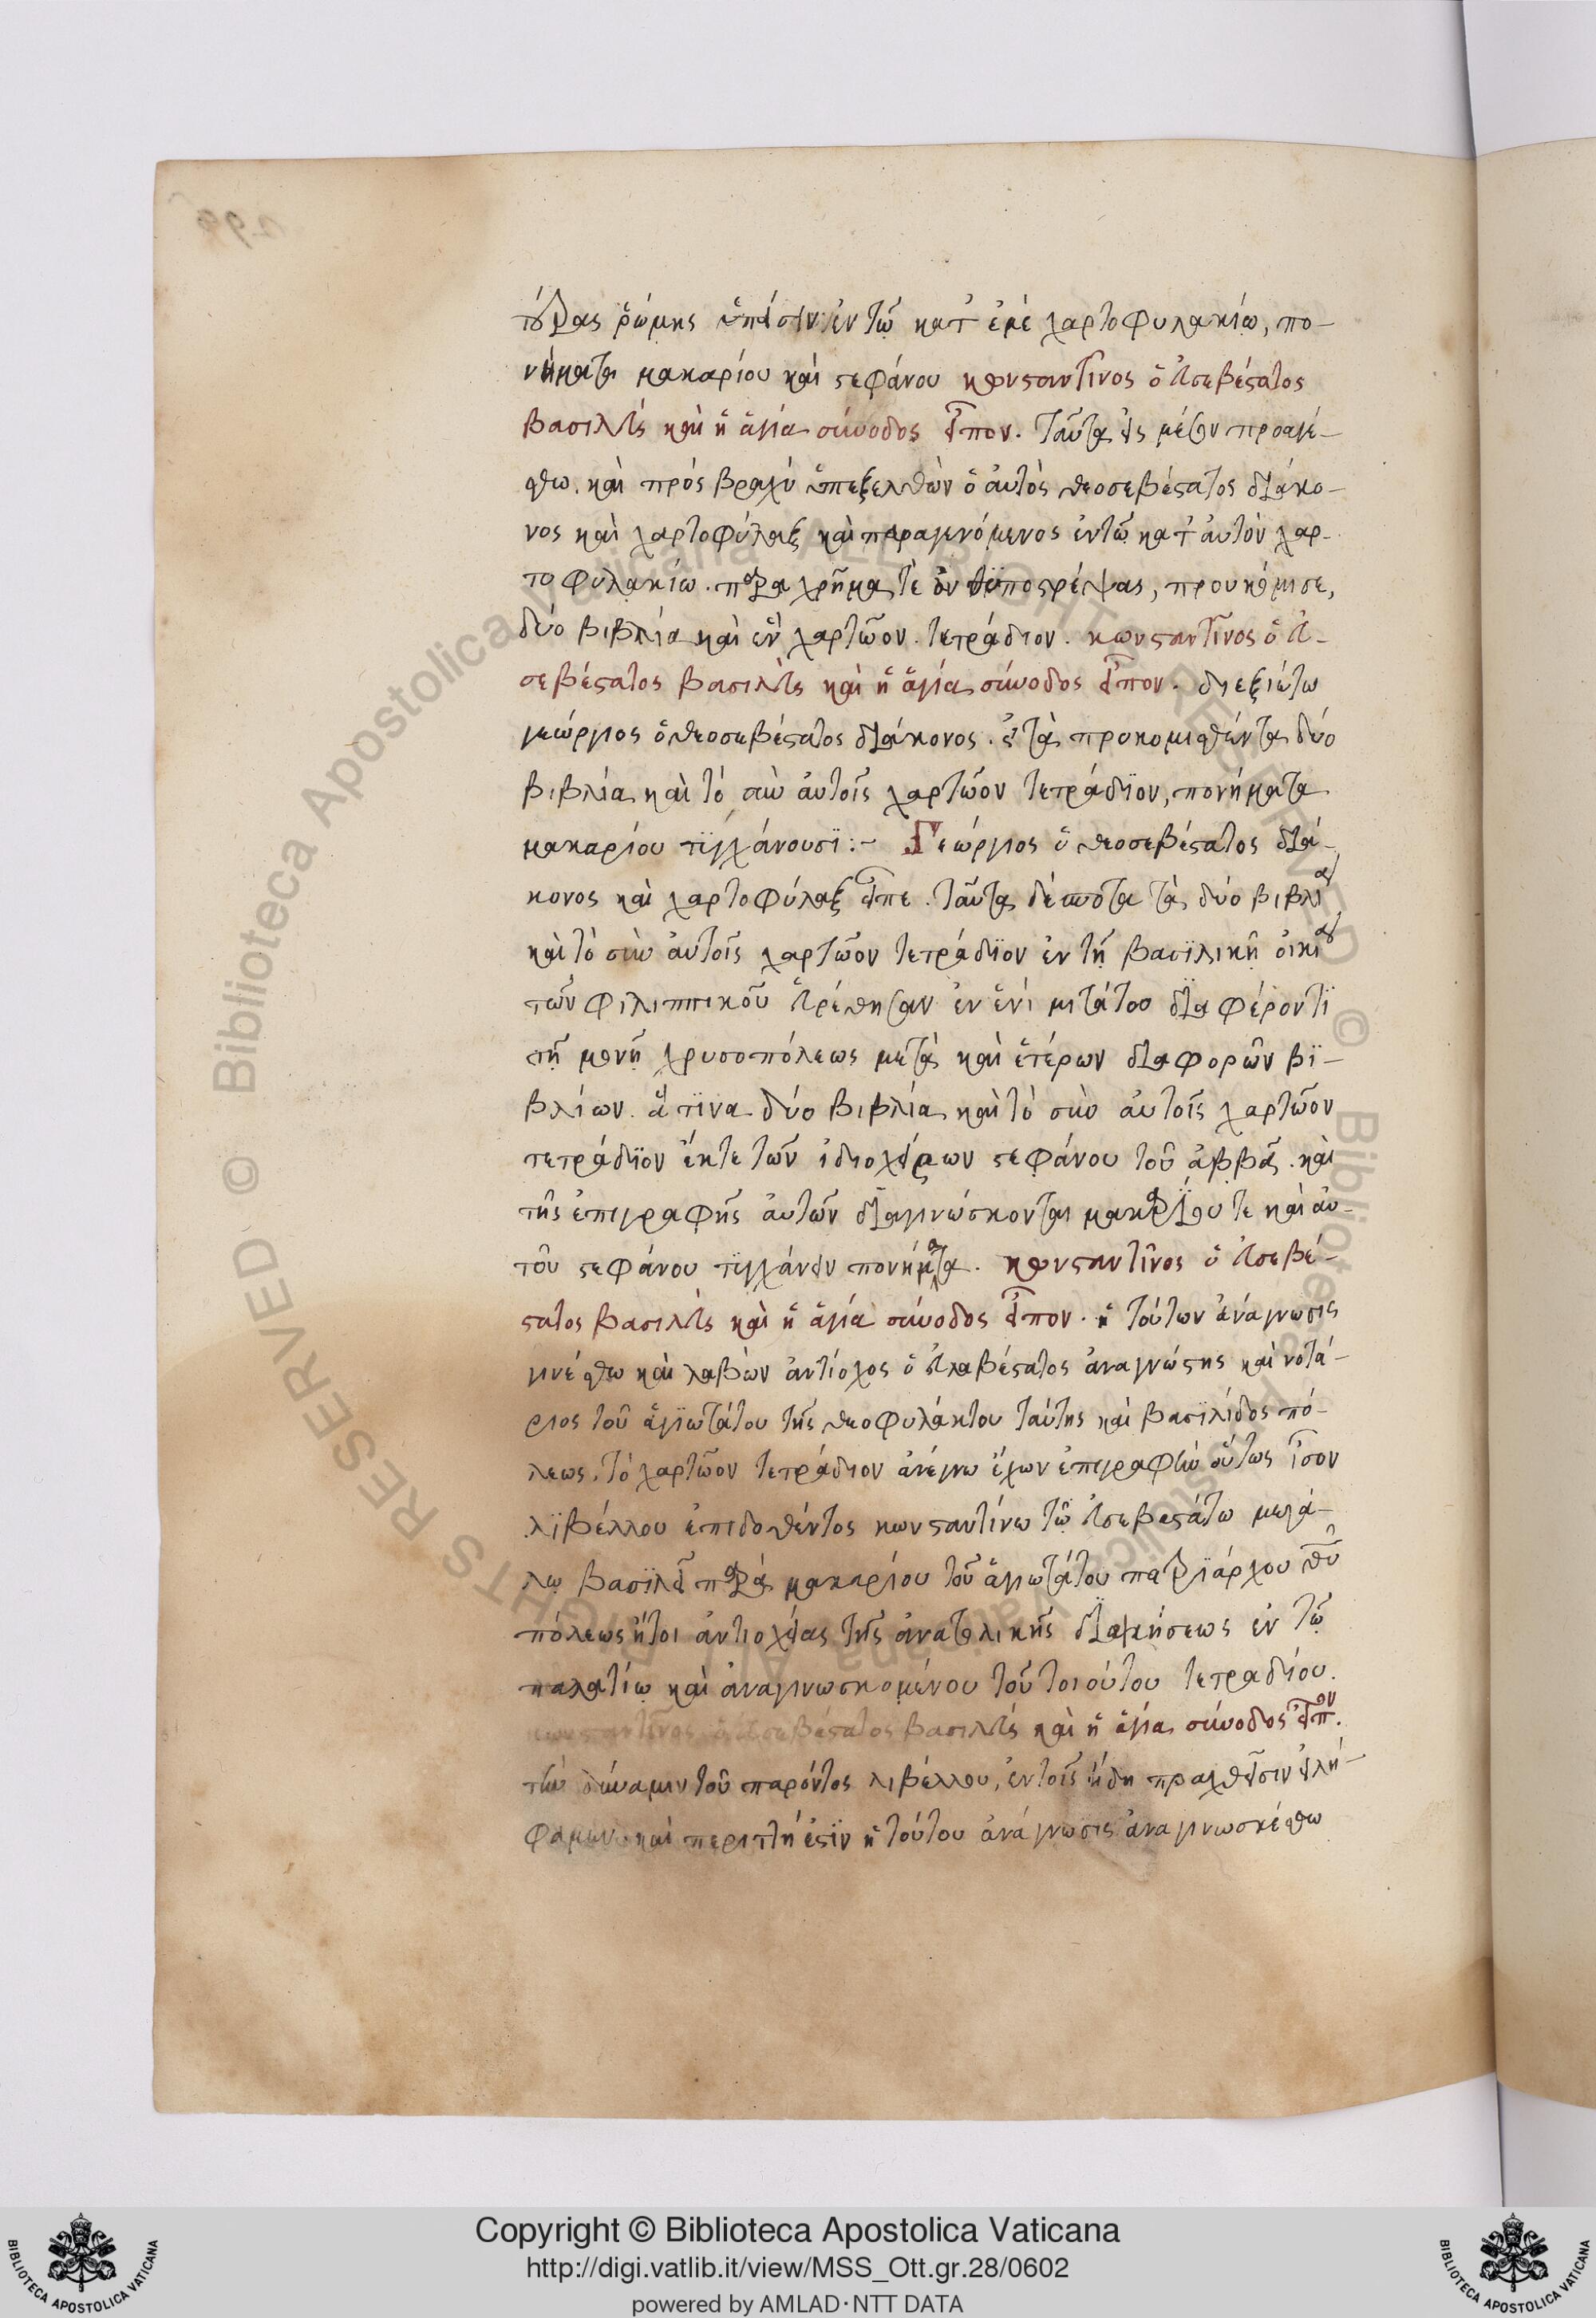 τέρας ῥώμης ἄπεισιν ἐν τῶ κατ ἐμὲ χαρτοφυλακίω, πο-
νήματα μακαρίου καὶ στεφάνου κωνσταντῖνος ὁ εὐσεβέστατος
βασιλεὺς καὶ ἡ ἁγία σύνοδος εἶπον. ταῦτα εἰς μέσον προαγέ-
σθω. καὶ πρός βραχύ ὑπεξελθὼν ὁ αὐτὸς θεοσεβέστατος διάκο-
νος καὶ χαρτοφύλαξ καὶ παραγενόμενος ἐν τῶ κατ αὐτὸν χαρ-
τοφυλακίω. παραχρῆμα τὲ ὑποστρέψας, προυκόμισε,
δύο βιβλία καὶ ἓν χαρτῶον τετράδιον. κωνσταντῖνος ὁ εὐ-
σεβέστατος βασιλεὺς καὶ ἡ ἁγία σύνοδος εἶπον. διεξιέτω
γεώργιος ὁ θεοσεβέστατος διάκονος. εἰ τὰ προκομισθέντα δύο
βιβλία καὶ τὸ σὺν αὐτοῖς χαρτῶον τετράδϊον, πονήματα
μακαρίου τϋγχάνουσϊ:- Γεώργιος ὁ θεοσεβέστατος διά-
κονος καὶ χαρτοφύλαξ εἶπε. ταῦτα δέσποτα τὰ δύο βιβλία
καὶ τὸ σὺν αὐτοῖς χαρτῶον τετράδϊον ἐν τῆ βασϊλικῆ οἰκία
τῶν φιλιππικοῦ εὑρέθησαν ἐν ἑνί μιτάτοσ διαφέροντϊ
τῆ μονῆ χρυσοπόλεως μετὰ καὶ ἑτέρων διαφορῶν βϊ-
βλίων. ἅτϊνα δύο βιβλία καὶ τὸ σὺν αὐτοῖς χαρτῶον
τετράδϊον ἔκ τε τῶν ἰδιοχείρων στεφάνου τοῦ ἀββᾶ. καὶ
τῆς ἐπιγραφῆς αὐτῶν διαγινώσκονται μακαρίου τε καὶ αὐ-
τοῦ στεφάνου τϋγχάνειν πονήματα. κωνσταντῖνος ὁ εὐσεβέ-
στατος βασιλεὺς καὶ ἡ ἁγία σύνοδος εἶπον. ἡ τούτων ἀνάγνωσις
γινέσθω καὶ λαβὼν ἀντίοχος ὁ εὐλαβέστατος ἀναγνώστης καὶ νοτά-
ριος τοῦ ἁγϊωτάτου τῆς θεοφυλάκτου ταύτης καὶ βασϊλίδος πό-
λεως. τὸ χαρτῶον τετράδιον ἀνέγνω ἔχων ἐπιγραφὴν οὕτως ἶσον
λϊβέλλου ἐπιδοθέντος κωνσταντίνω τῶ εὐσεβεστάτω μεγά-
λω βασϊλεῖ παρά μακαρίου τοῦ ἁγιωτάτου πατριάρχου θῦ
πόλεως ἤτοι ἀντιοχείας τῆς ἀνατολικῆς διοικήσεως ἐν τῶ
παλατίω καὶ ἀναγινωσκομένου τοῦ τοιούτου τετραδίου.
κωνσταντῖνος ὁ εὐσεβέστατος βασιλεὺς καὶ ἡ ἁγία σύνοδος εἶπον.
τὴν δύναμιν τοῦ παρόντος λιβέλλου, ἐν τοῖς ἤδη πραχθεῖσιν εἰλή-
φαμεν καὶ περιττή ἐστϊν ἡ τούτου ἀνάγνωσις ἀναγινωσκέσθω
Copyright © Biblioteca Apostolica Vaticana
http://digi.vatlib.it/view/MSS_Ott.gr.28/0602
powered by AMLAD·NTT DATA